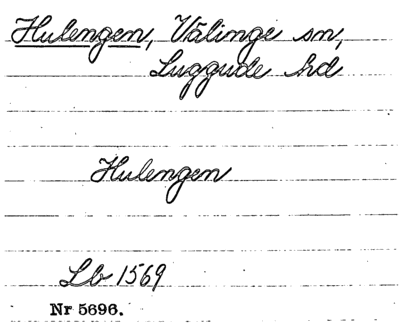 Hulengen, Välinge sn,
Luggude hd
Hulengen
Lb 1569
Nr 5696.